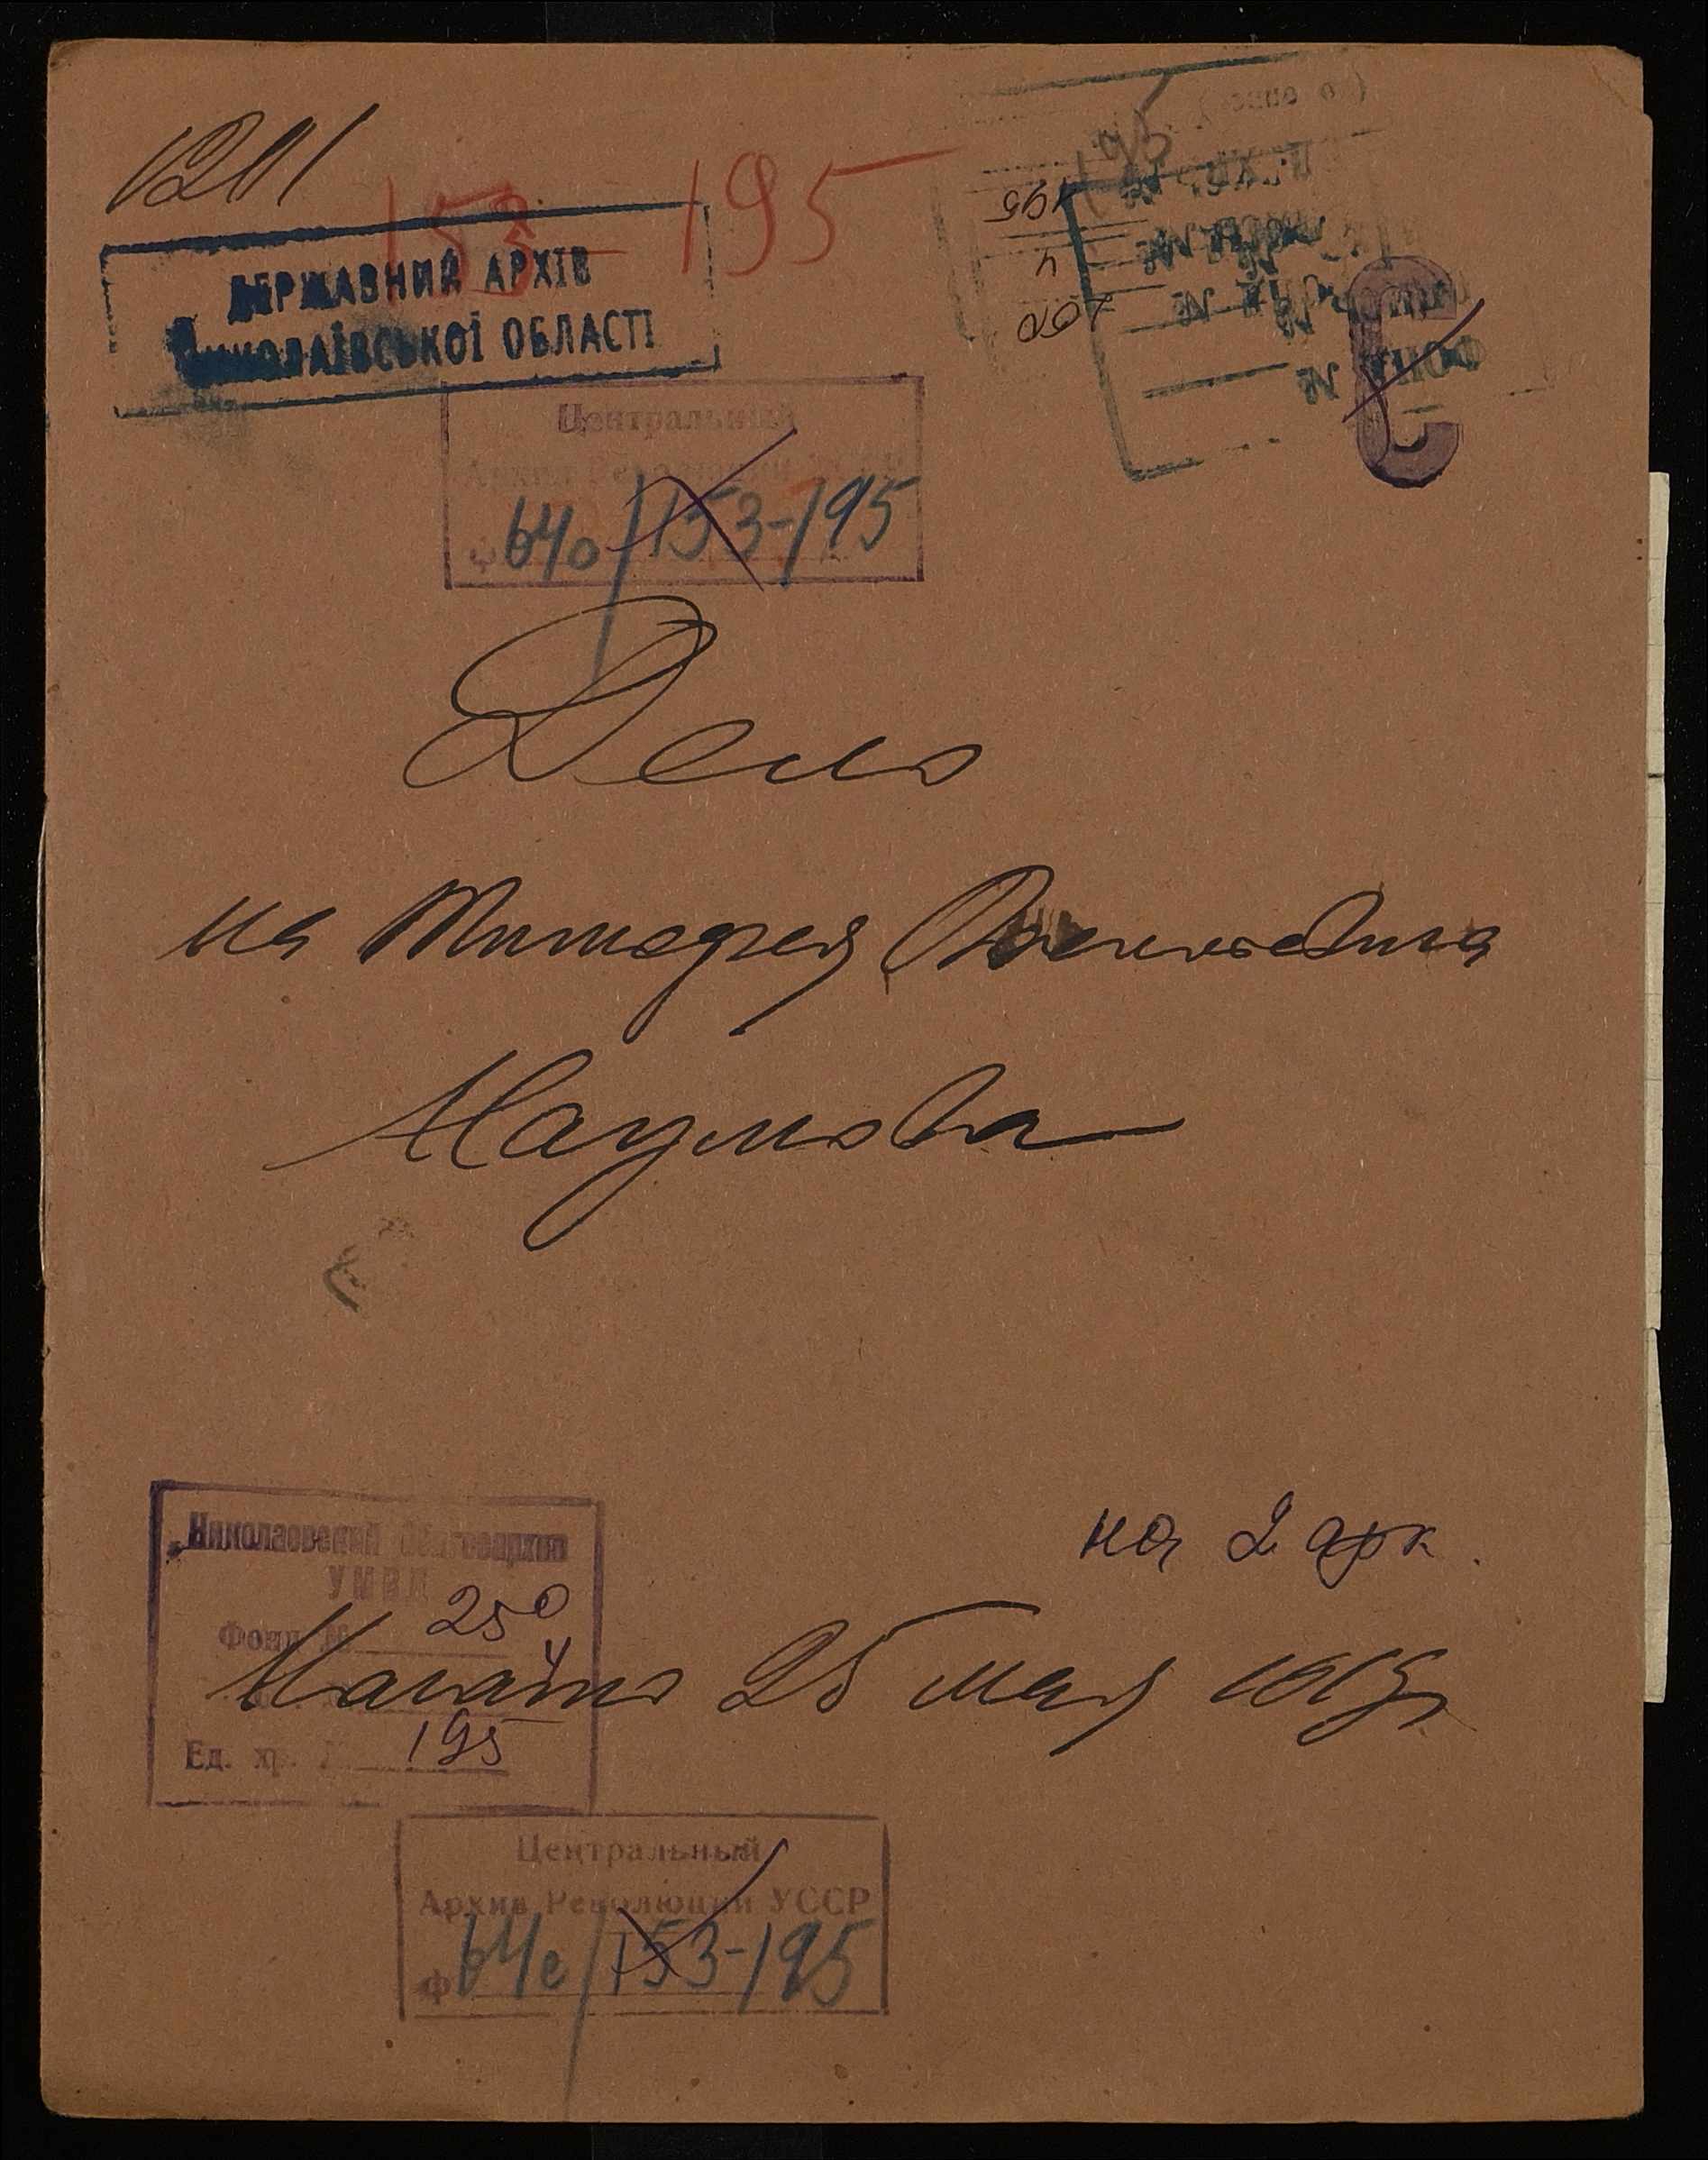 1211
153-195
ДЕРЖАВНИЙ АРХІВ
МИКОЛАЇВСЬКОЇ ОБЛАСТІ
195
4
250
ФОНД №
Центральный
Архив Революции УССР
Ф 640/153-195
Дело
на Тимофея
Наумова
на 2 арк.
Николаевский облгосархив
УМВД
Фонд № 250
4
Ед. хр. № 195
Начато 25 мая
Центральный
Архив Революции УССР
Ф 64с/153-195